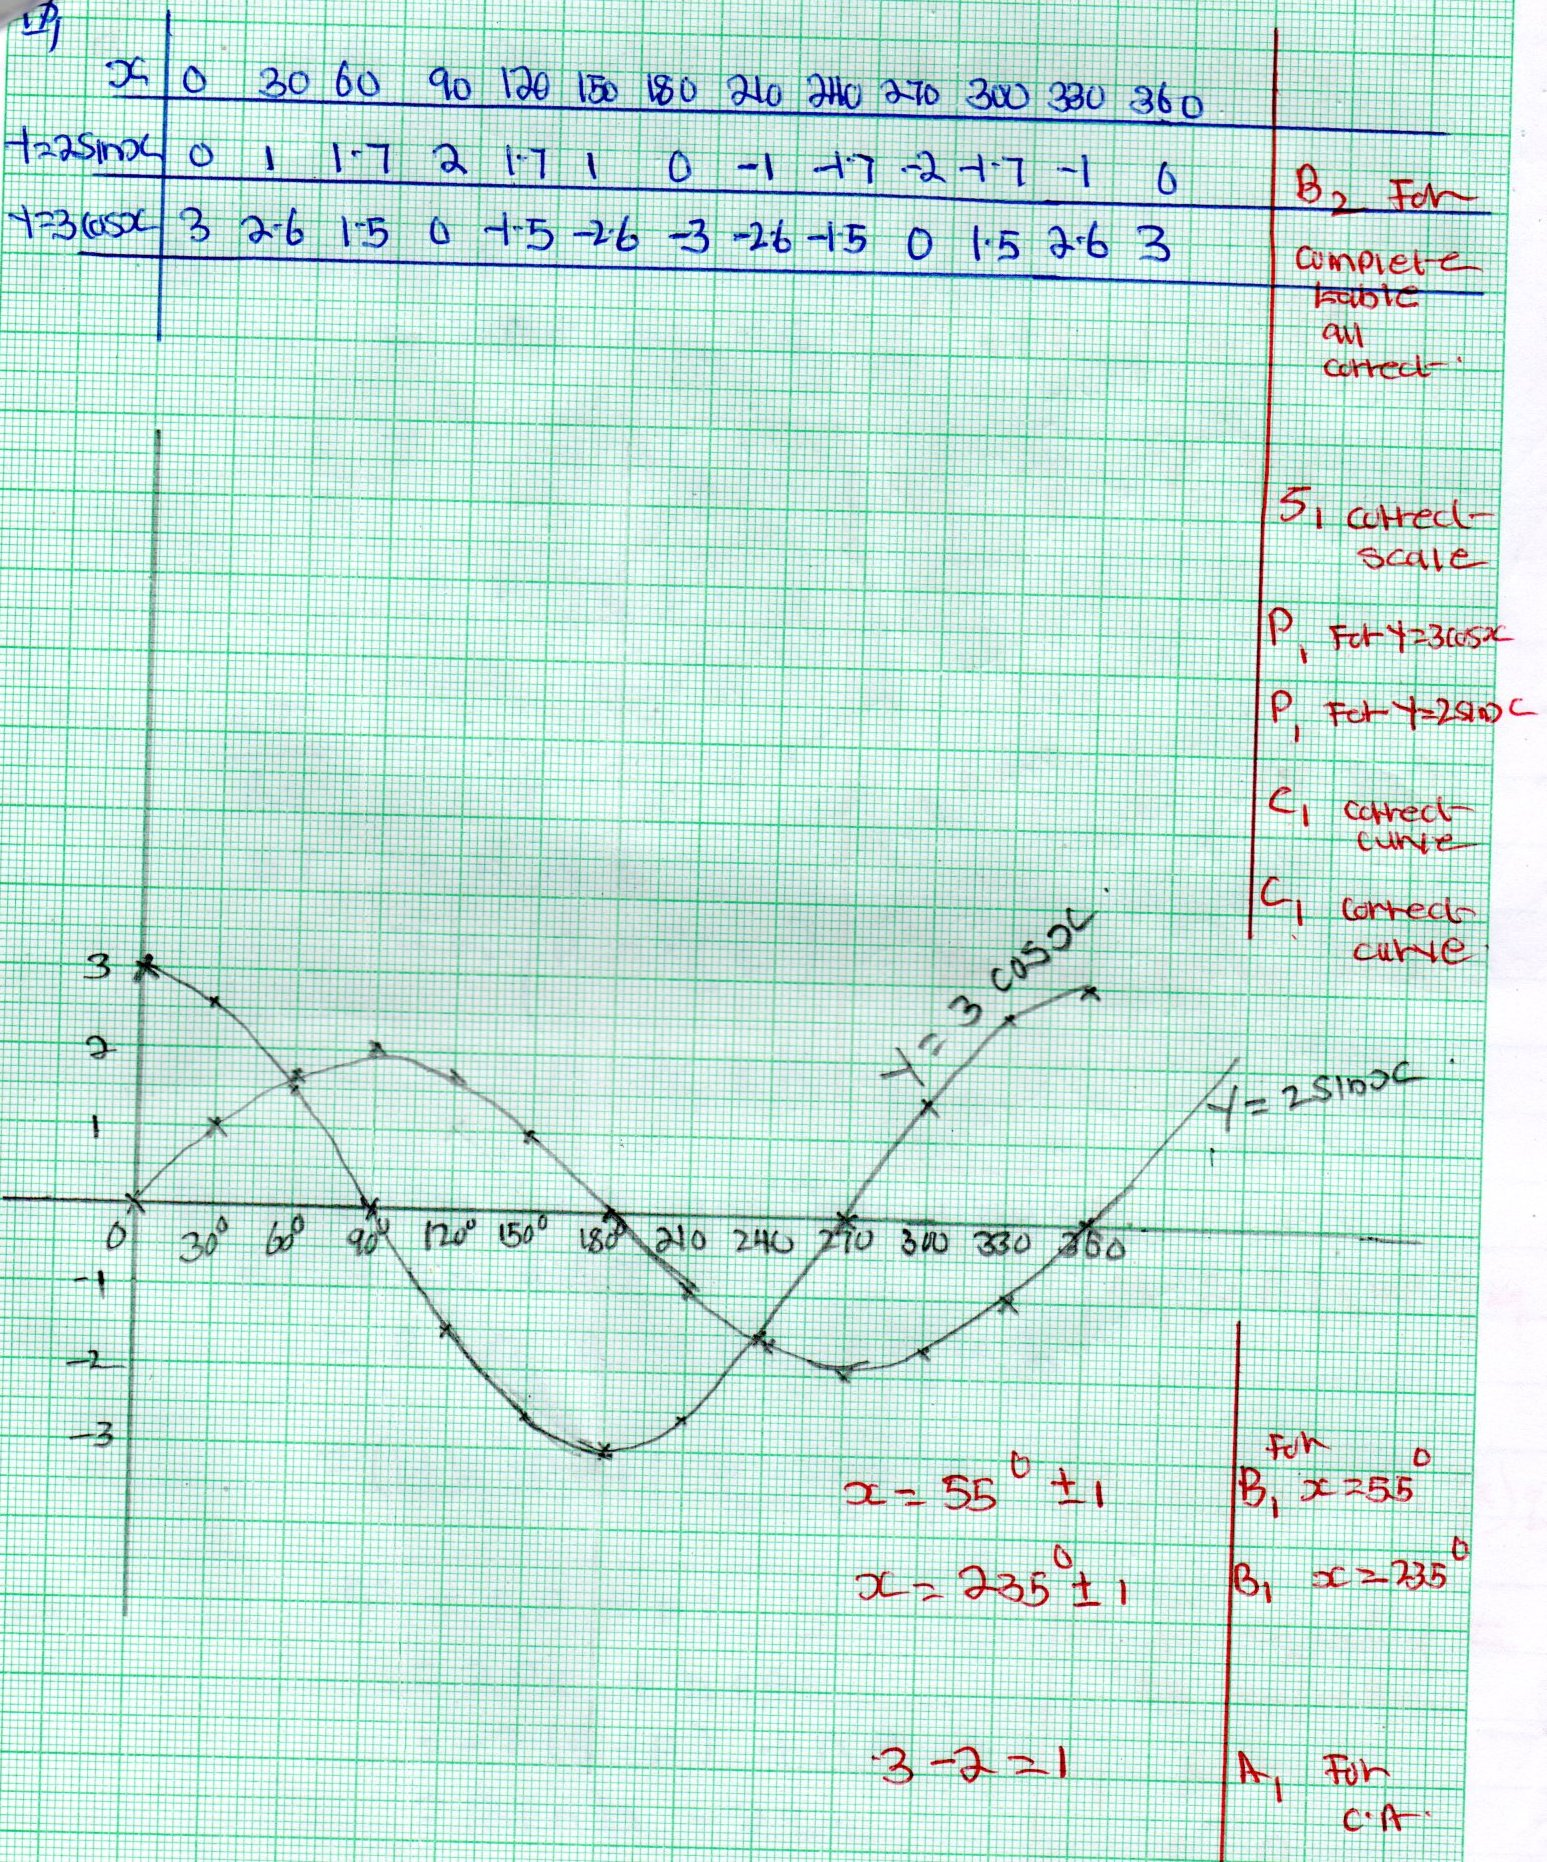 x 0 30 60 90 120 150 180 210 240 270 300 330 360
Y=2sinx 0 1 1.7 2 1.7 1 0 -1 -1.7 -2 -1.7 -1 0
Y=3cosx 3 2.6 1.5 0 -1.5 -2.6 -3 -2.6 -1.5 0 1.5 2.6 3
B2 For
complete
table
all
correct.
S1 correct
scale
P1 For Y=3cosx
P1 For Y=2sinx
C1 correct
curve
C1 correct
curve
Y = 3 cosx
Y = 2sinx
3
2
1
0 30° 60° 90° 120° 150° 180° 210 240 270 300 330 360
-1
-2
-3
x = 55° ± 1
For
B1 x = 55°
x = 235° ± 1
B1 x = 235°
3 - 2 = 1
A1 For
C.A.